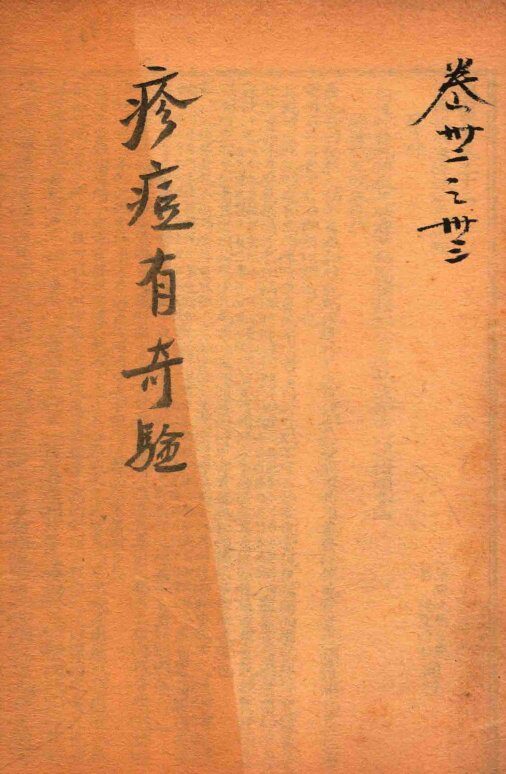 卷卌二之卌三
疹痘有奇驗